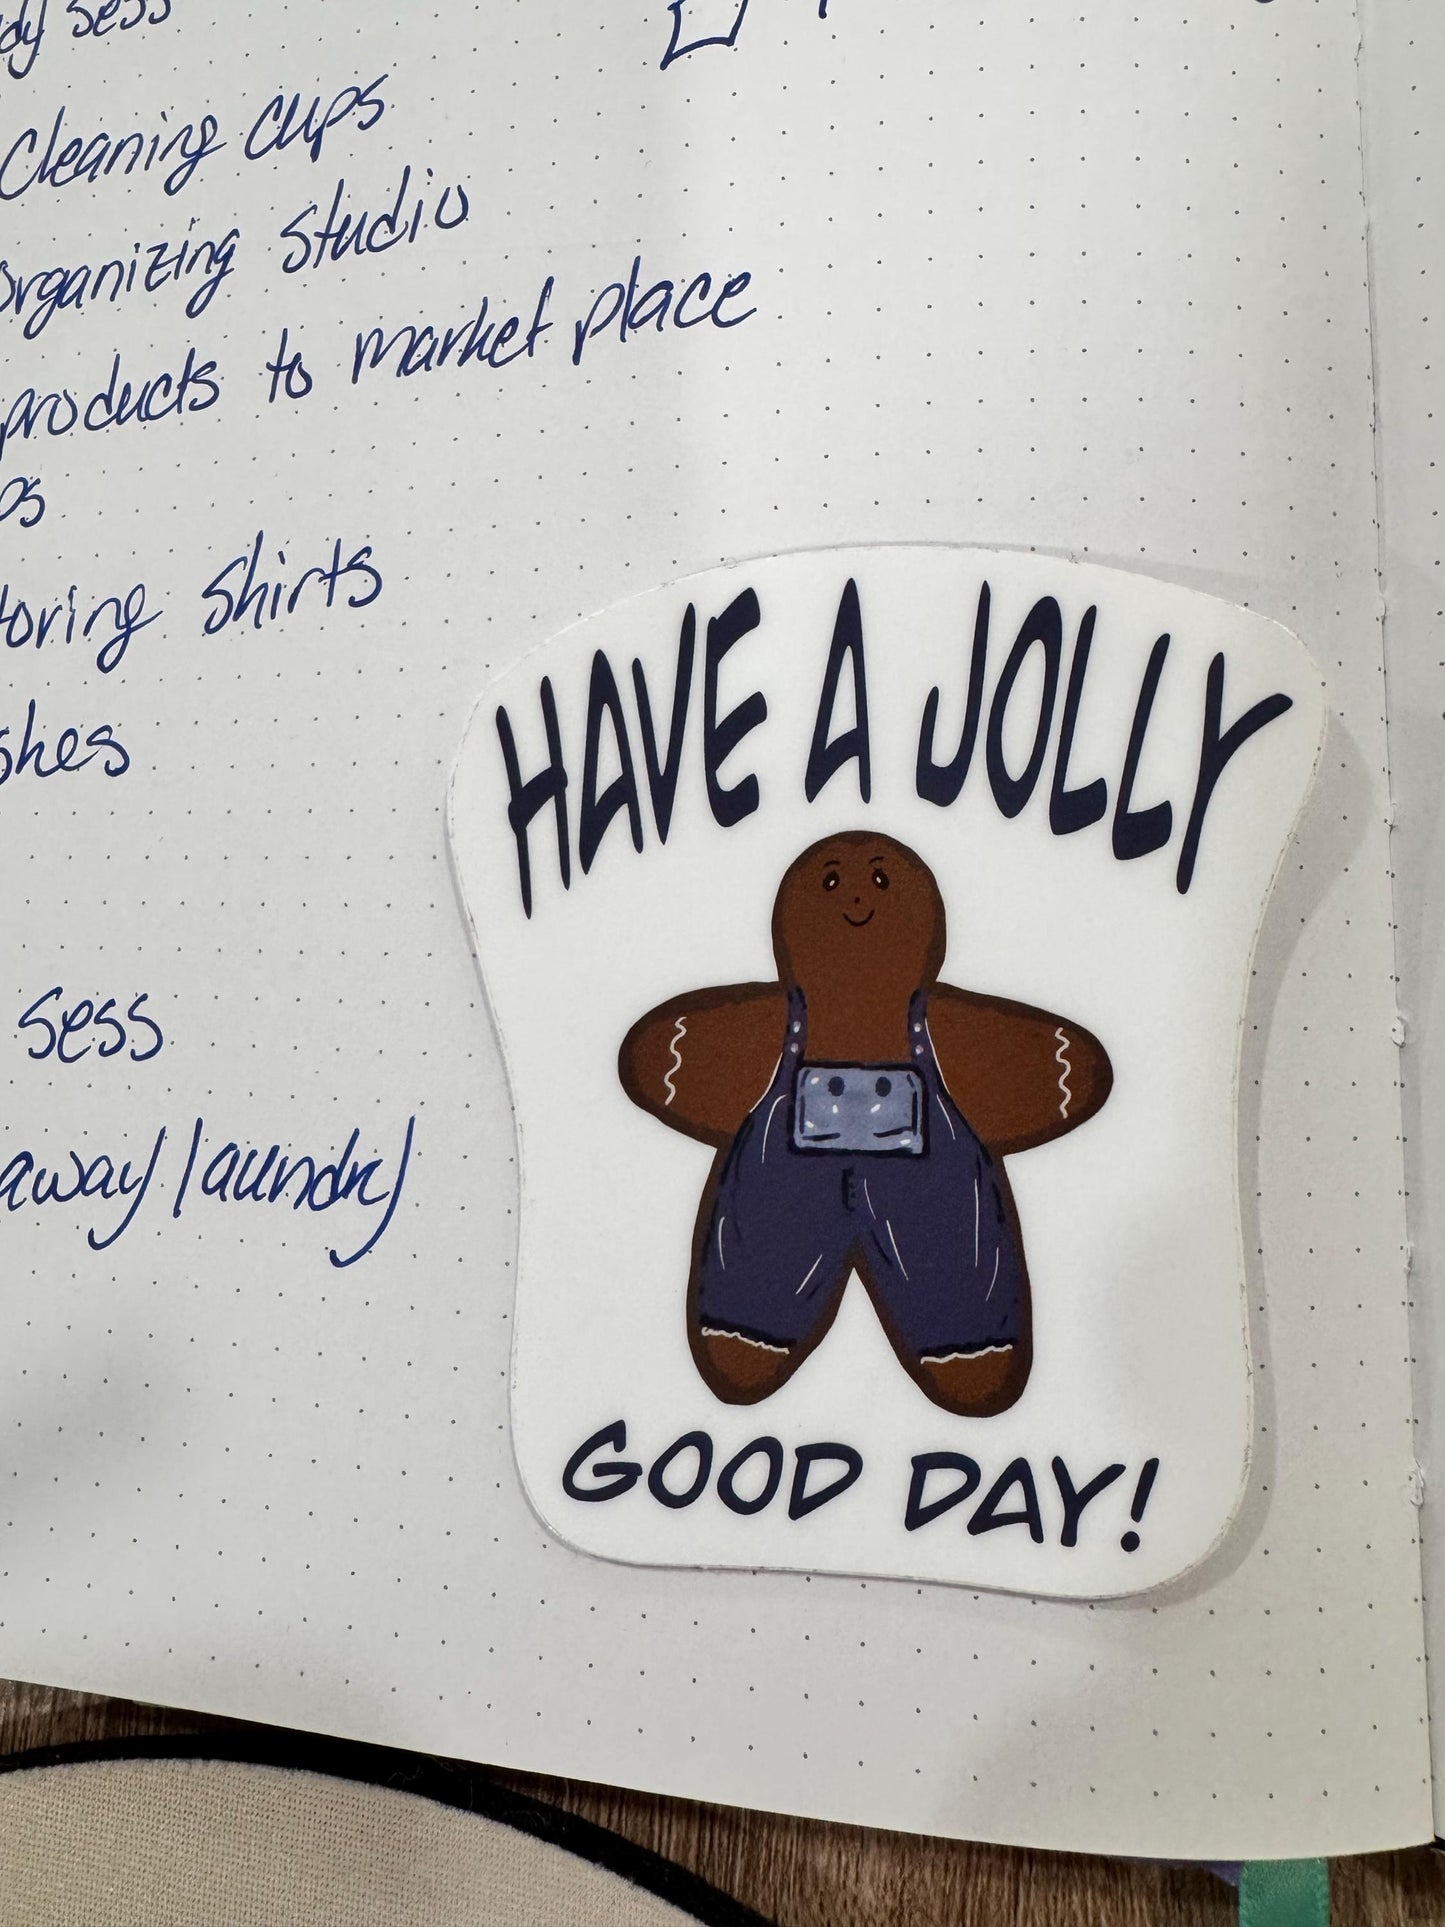 sess
Cleaning cups
Organizing studio
products to market place
shirts
sess
away laundry
HAVE A JOLLY
GOOD DAY!